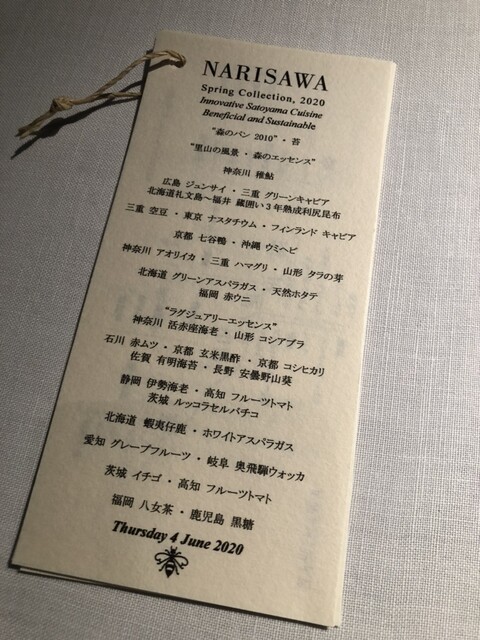 NARISAWA
Spring Collection, 2020
Innovative Satoyama Cuisine
Beneficial and Sustainable
“森のパン 2010”・苔
“里山の風景・森のエッセンス”
神奈川 稚鮎
広島 ジュンサイ・三重 グリーンキャビア
北海道礼文島～福井 蔵囲い3年熟成利尻昆布
三重 空豆・東京 ナスタチウム・フィンランド キャビア
京都 七谷鴨・沖縄 ウミヘビ
神奈川 アオリイカ・三重 ハマグリ・山形 タラの芽
北海道 グリーンアスパラガス・天然ホタテ
福岡 赤ウニ
“ラグジュアリーエッセンス”
神奈川 活赤座海老・山形 コシアブラ
石川 赤ムツ・京都 玄米黒酢・京都 コシヒカリ
佐賀 有明海苔・長野 安曇野山葵
静岡 伊勢海老・高知 フルーツトマト
茨城 ルッコラセルバチコ
北海道 蝦夷仔鹿・ホワイトアスパラガス
愛知 グレープフルーツ・岐阜 奥飛騨ウォッカ
茨城 イチゴ・高知 フルーツトマト
福岡 八女茶・鹿児島 黒糖
Thursday 4 June 2020